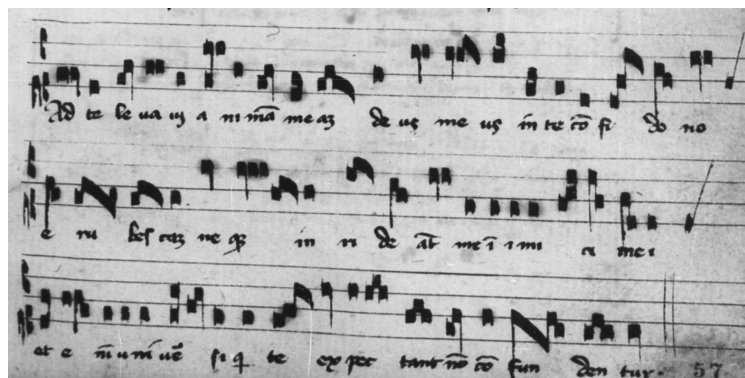 Ad te le va vi a ni mā me aȝ de us me us in te cō fi do no
e ru bes caȝ ne qȝ in ri de āt me ī i mi ci me i
et e ni u ni u̅e si q̄ te ex pec tant nō cō fun den tur . 57